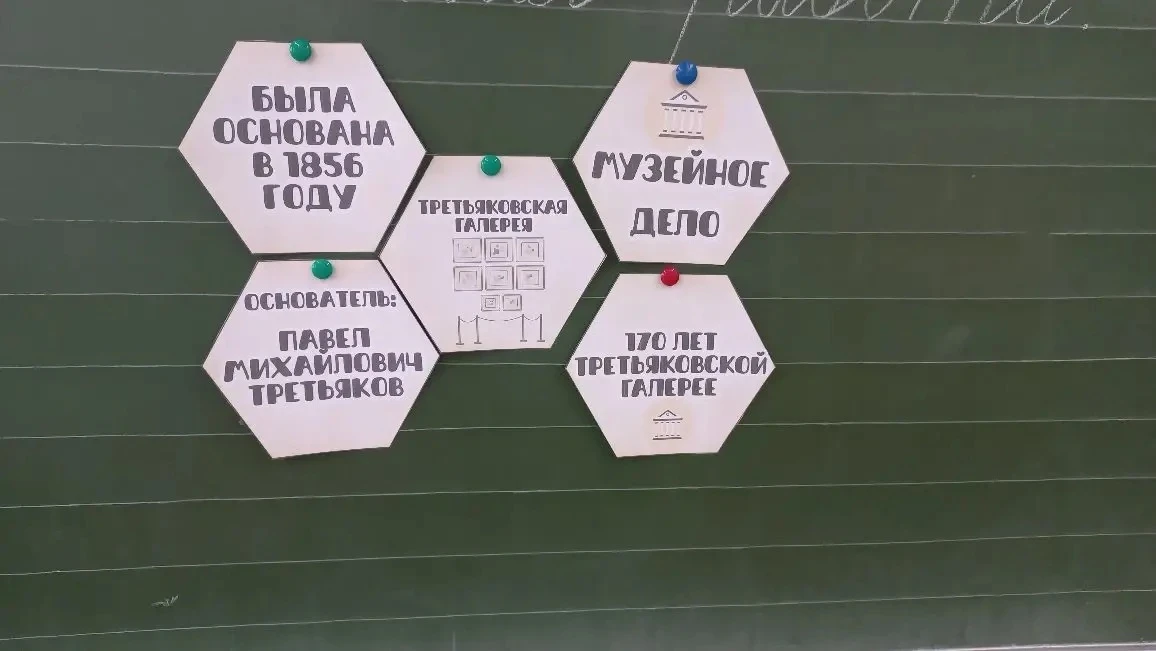 БЫЛА
ОСНОВАНА
В 1856
ГОДУ
ТРЕТЬЯКОВСКАЯ
ГАЛЕРЕЯ
МУЗЕЙНОЕ
ДЕЛО
ОСНОВАТЕЛЬ:
ПАВЕЛ
МИХАЙЛОВИЧ
ТРЕТЬЯКОВ
170 ЛЕТ
ТРЕТЬЯКОВСКОЙ
ГАЛЕРЕЕ